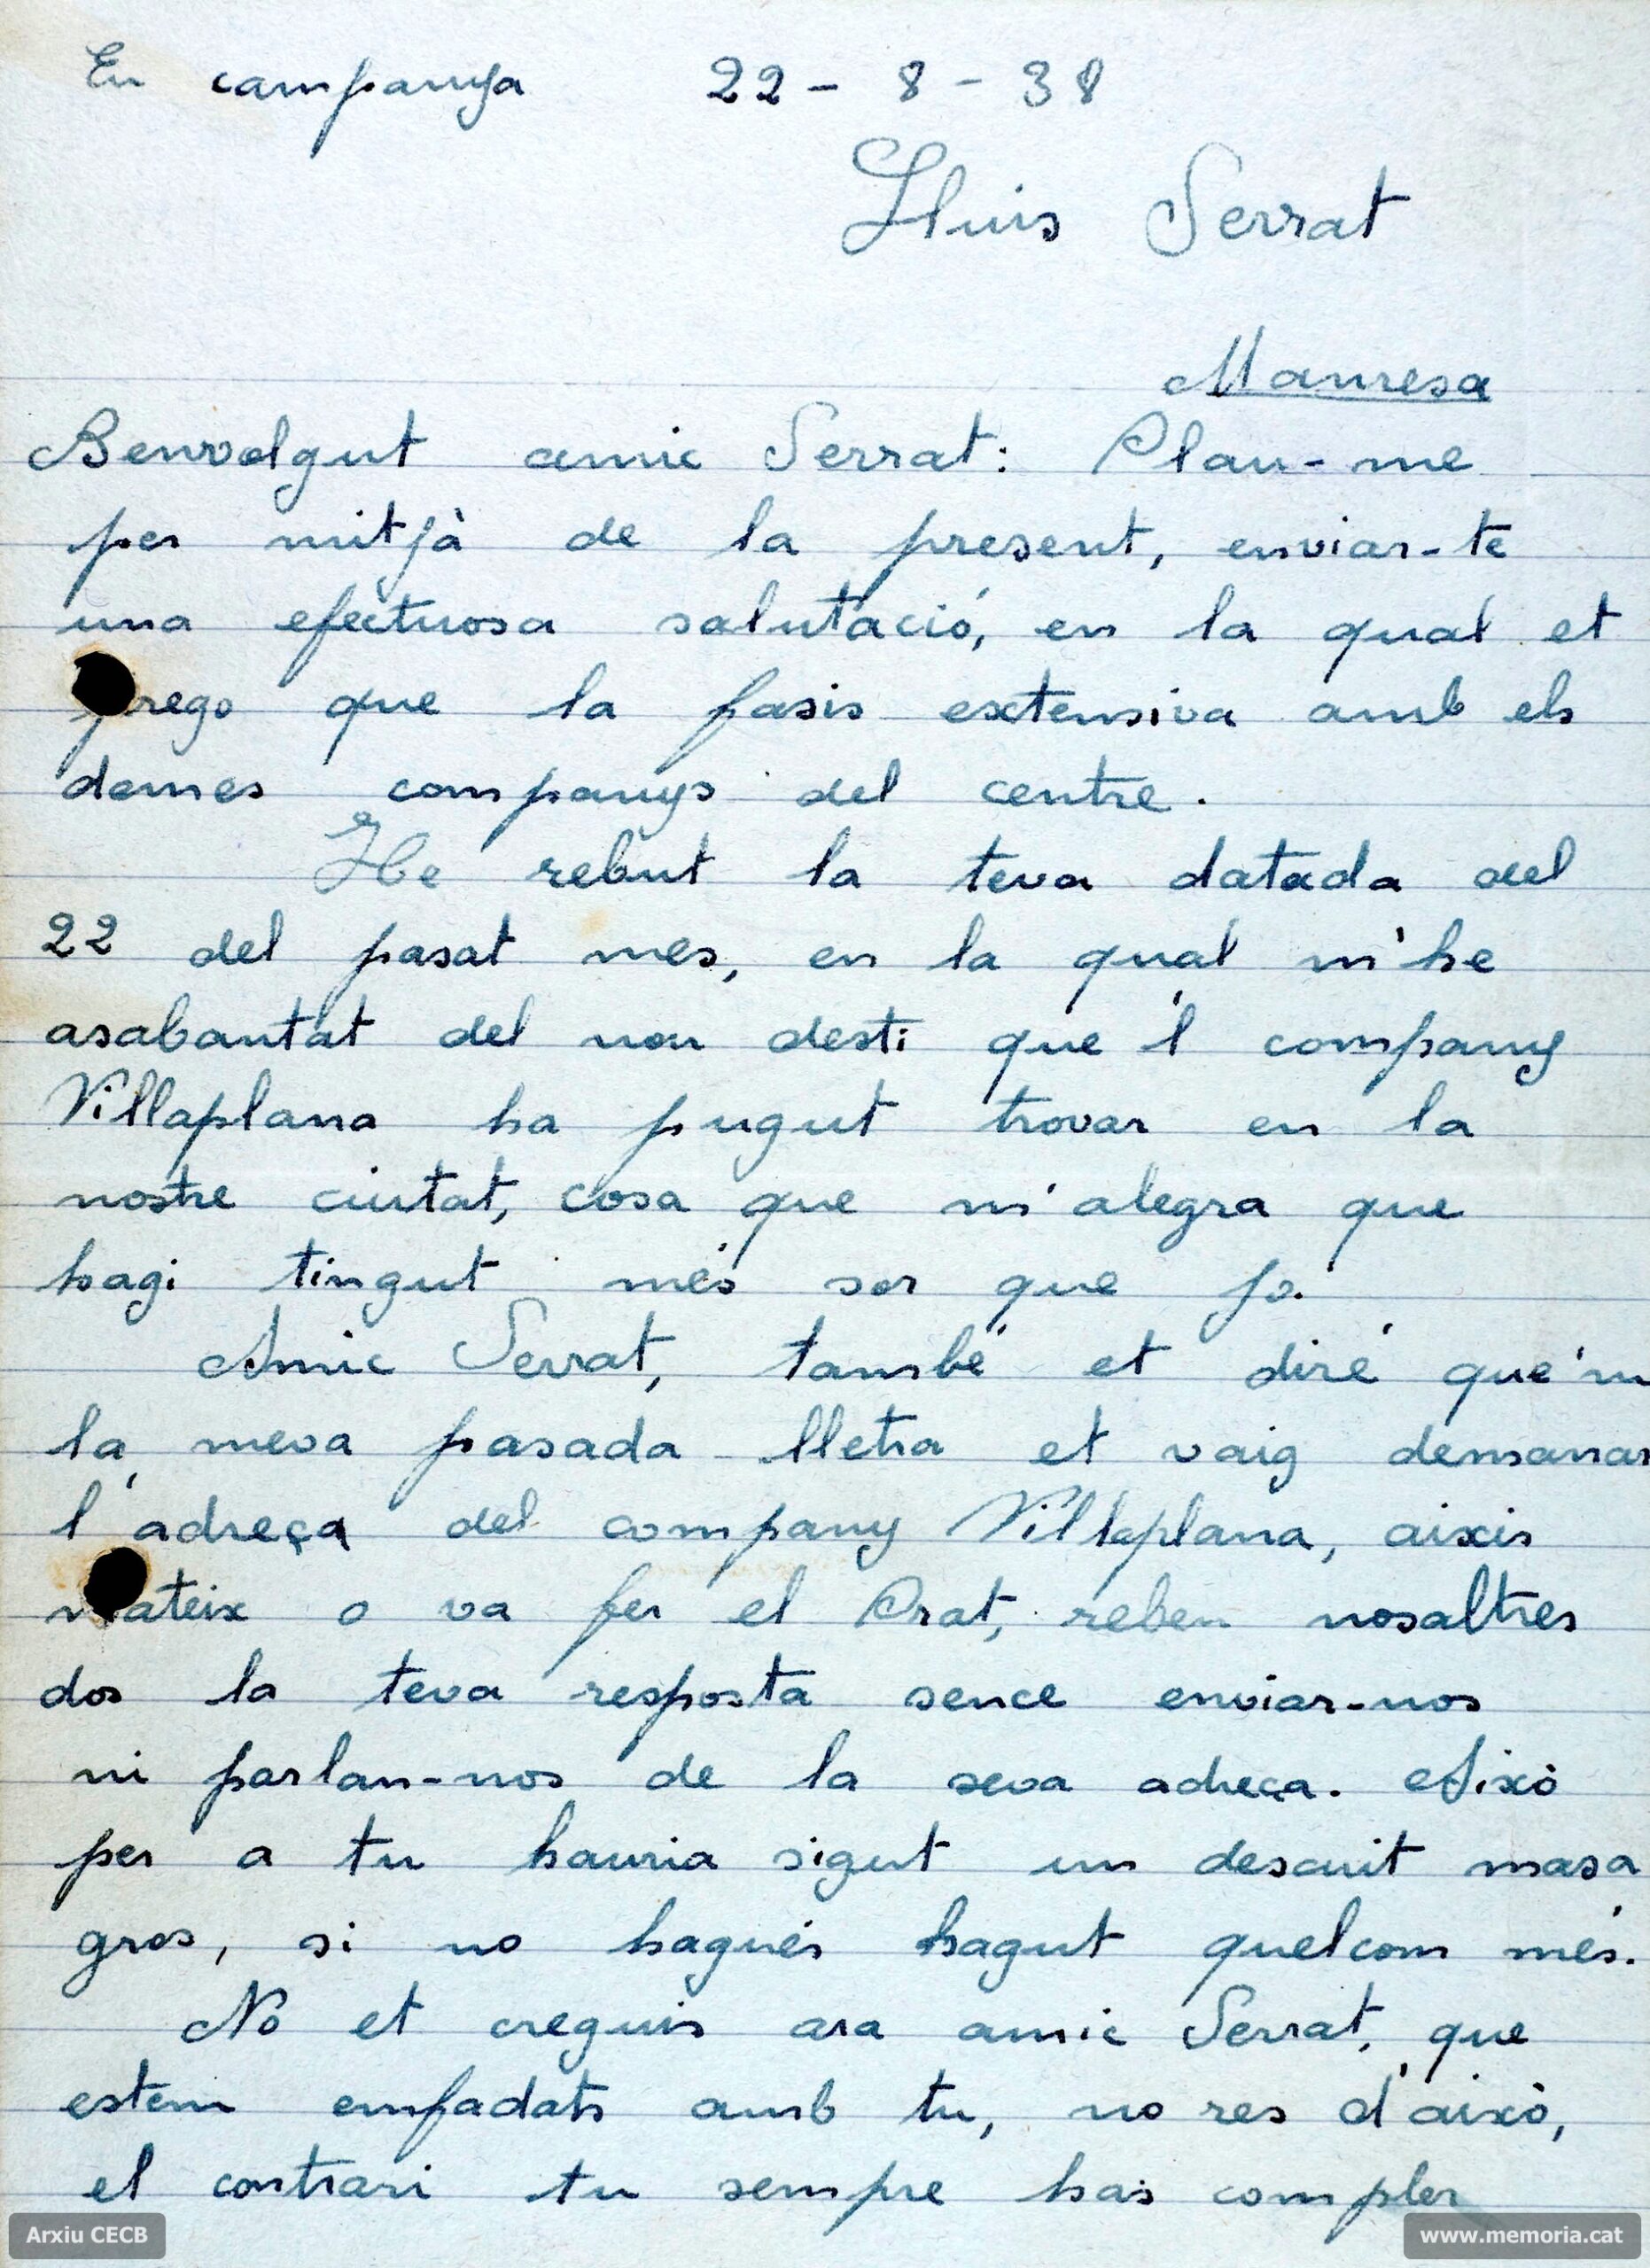 En campanya 22 - 8 - 38
Lluis Serrat
Manresa
Benvolgut amic Serrat: Plau-me
per mitjà de la present, enviar-te
una efectuosa salutació, en la qual et
prego que la fasis extensiva amb els
demes companys del centre.
He rebut la teva datada del
22 del pasat mes, en la qual m'he
asabantat del nou desti que'l company
Villaplana ha pugut trovar en la
nostre ciutat, cosa que m'alegra que
hagi tingut més sor que jo.
Amic Serrat, també et diré que'm
la meva pasada lletra et vaig demanar
l'adreça del company Villaplana, aixis
mateix o va fer el Prat, reben nosaltres
dos la teva resposta sence enviar-nos
ni parlan-nos de la seva adreça. Aixó
per a tu hauria sigut un descuit masa
gros, si no hagués hagut quelcom més.
No et creguis ara amic Serrat, que
estem emfadats amb tu, no res d'aixó,
el contrari tu sempre has compler
Arxiu CECB
www.memoria.cat